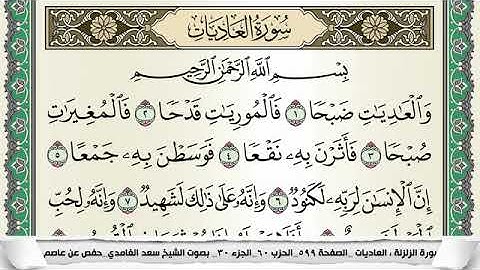 سُورَةُ العَادِيَات
بِسْمِ ٱللَّهِ ٱلرَّحْمَٰنِ ٱلرَّحِيمِ
وَٱلْعَٰدِيَٰتِ ضَبْحًا ١ فَٱلْمُورِيَٰتِ قَدْحًا ٢ فَٱلْمُغِيرَٰتِ
صُبْحًا ٣ فَأَثَرْنَ بِهِۦ نَقْعًا ٤ فَوَسَطْنَ بِهِۦ جَمْعًا ٥
إِنَّ ٱلْإِنسَٰنَ لِرَبِّهِۦ لَكَنُودٌ ٦ وَإِنَّهُۥ عَلَىٰ ذَٰلِكَ لَشَهِيدٌ ٧ وَإِنَّهُۥ لِحُبِّ
ورة الزلزلة ، العاديات _الصفحة ٥٩٩_الحزب ٦٠_الجزء ٣٠_ بصوت الشيخ سعد الغامدي_حفص عن عاصم